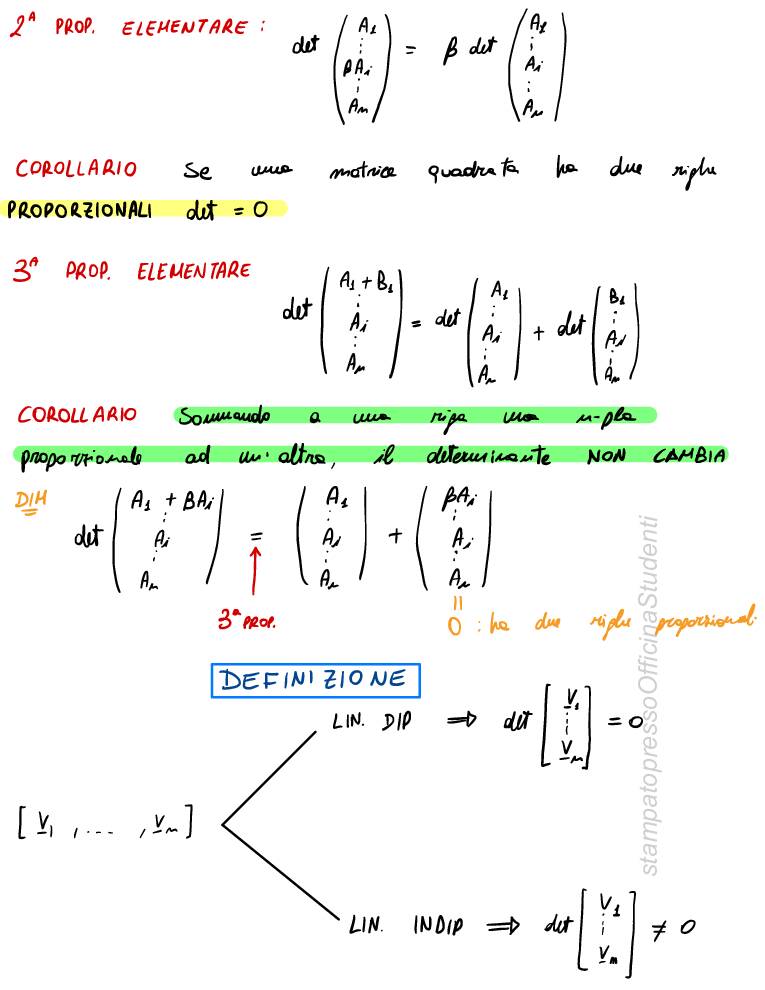 2ª PROP. ELEMENTARE : det (A1 ⋮ βAi ⋮ An) = β det (A1 ⋮ Ai ⋮ An)
COROLLARIO Se una matrice quadrata ha due righe
PROPORZIONALI det = 0
3ª PROP. ELEMENTARE
det (A1 + B1 ⋮ Ai ⋮ An) = det (A1 ⋮ Ai ⋮ An) + det (B1 ⋮ Ai ⋮ An)
COROLLARIO Sommando a una riga una n-pla
proporzionale ad un'altra, il determinante NON CAMBIA
DIM
det (A1 + βAi ⋮ Ai ⋮ An) = (A1 ⋮ Ai ⋮ An) + (βAi ⋮ Ai ⋮ An)
3ª PROP.
= 0 : ha due righe proporzionali
DEFINIZIONE
LIN. DIP ⇒ det [V1 ⋮ Vn] = 0
[V1, ...., Vn]
LIN. INDIP ⇒ det [V1 ⋮ Vn] ≠ 0
stampatopressoOfficinaStudenti